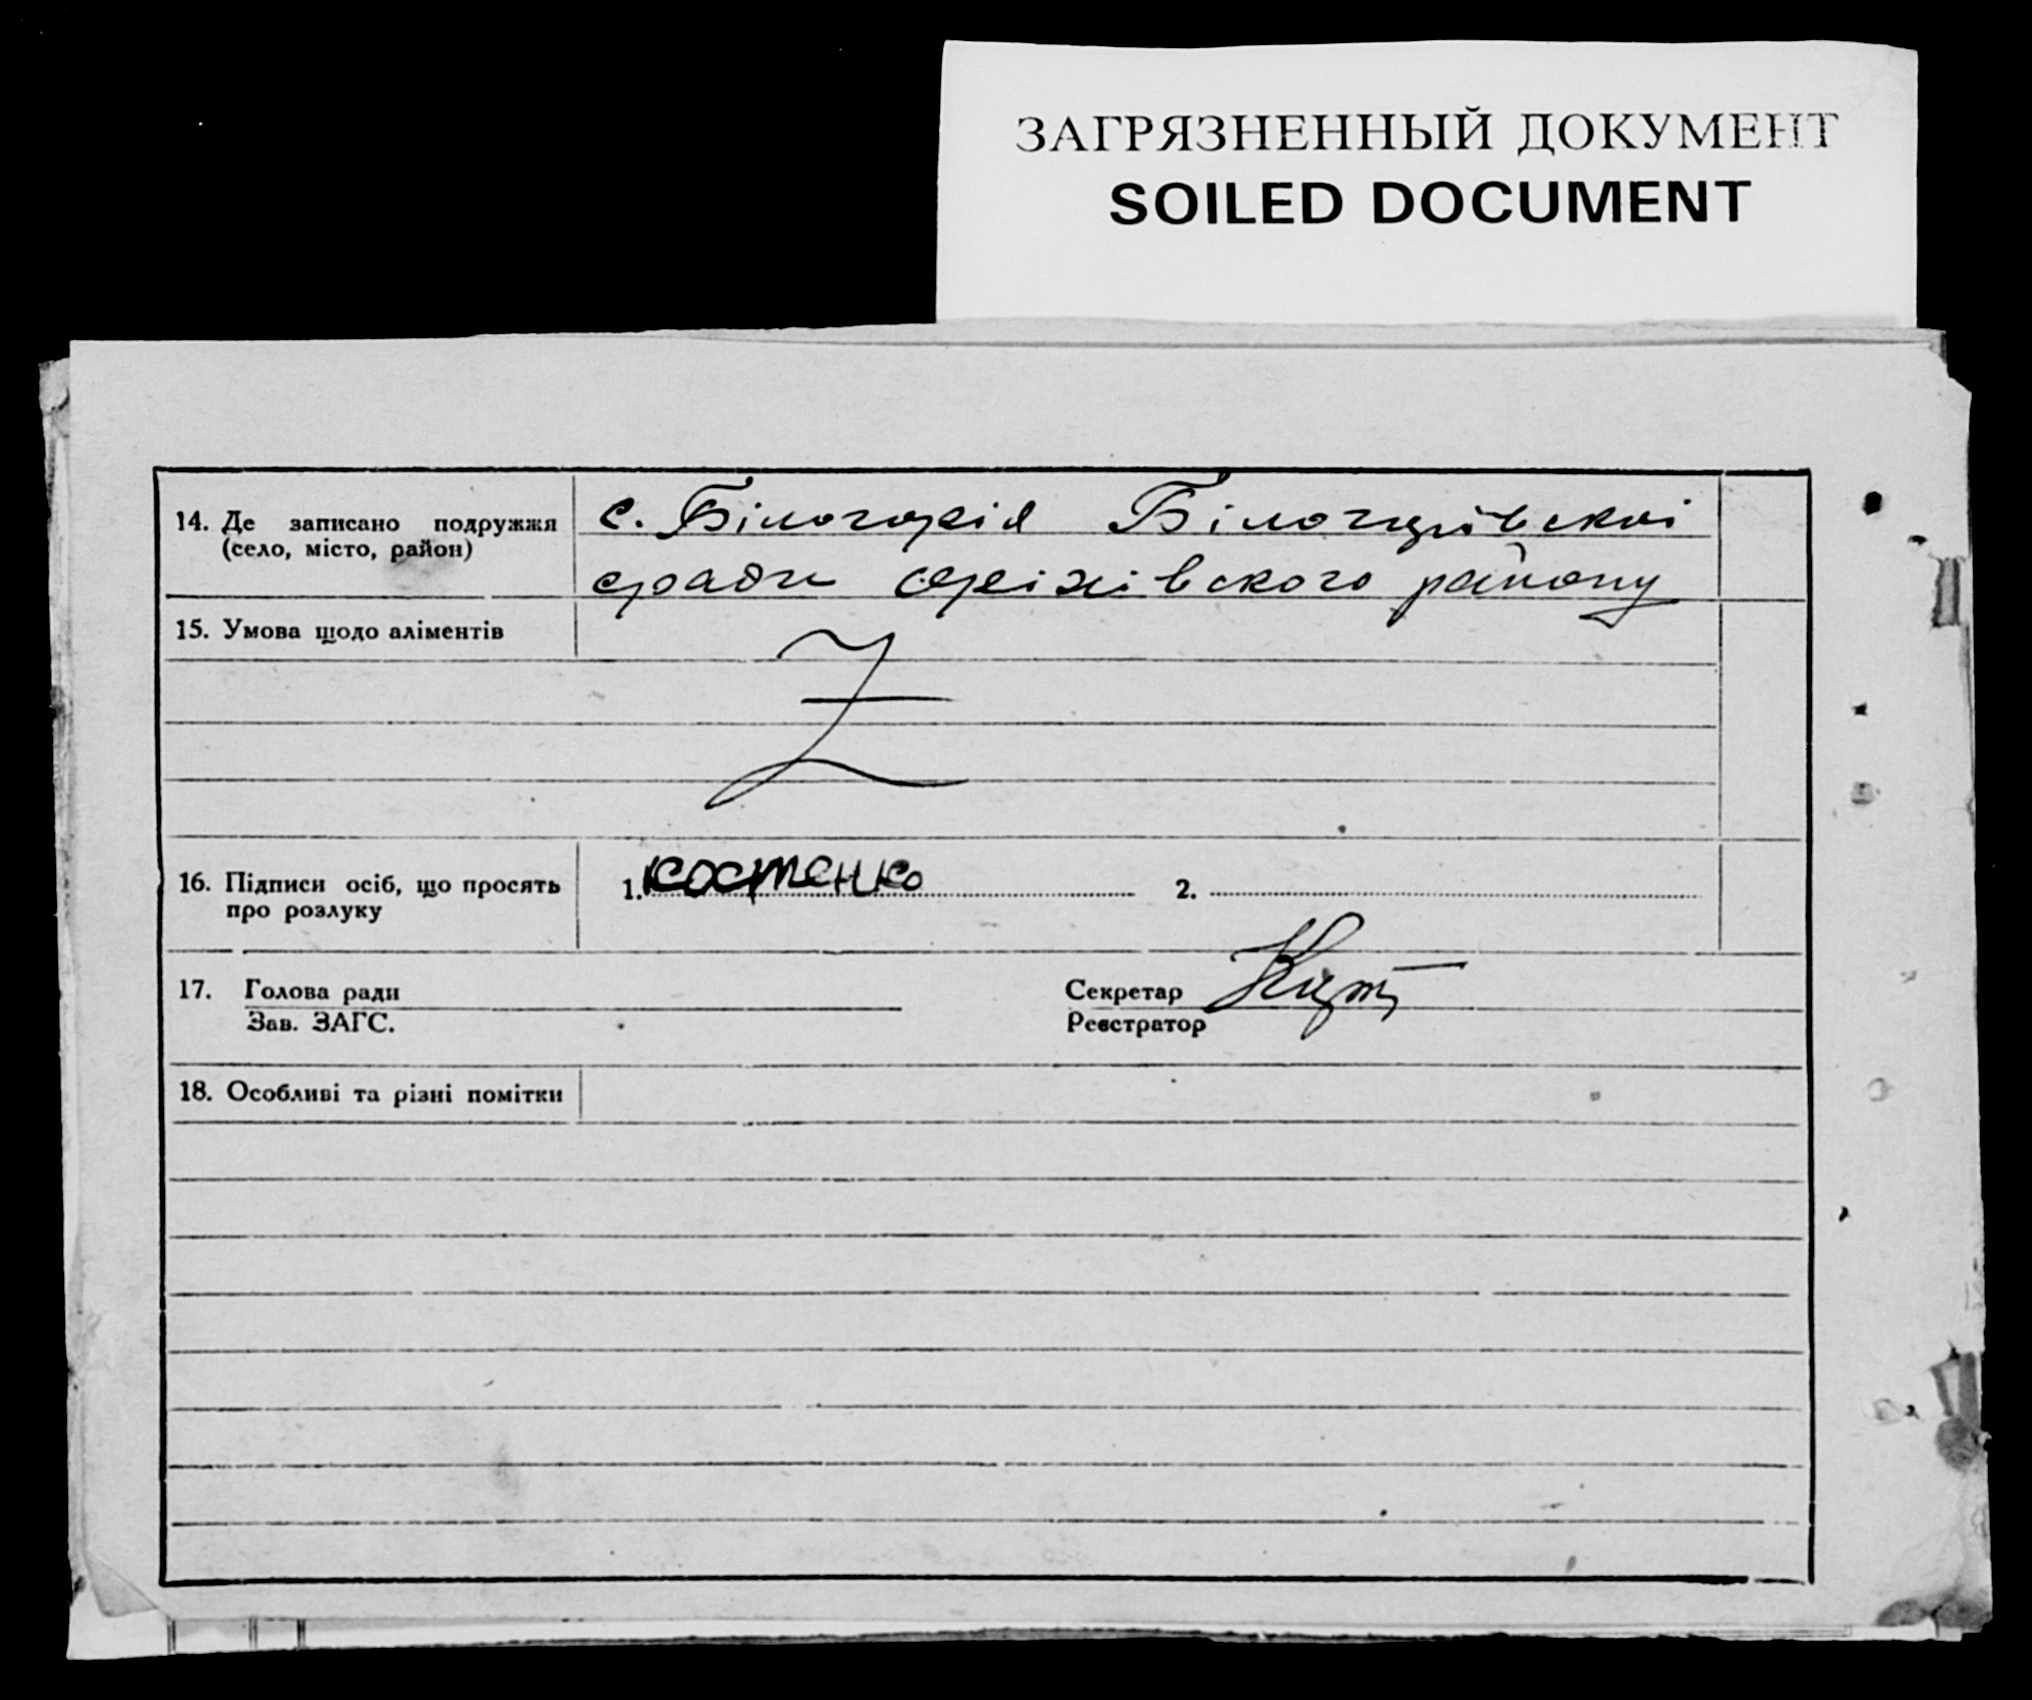 ЗАГРЯЗНЕННЫЙ ДОКУМЕНТ
SOILED DOCUMENT
14. Де записано подружжя
(село, місто, район)
с. Білогорія Білогорівскої
с/ради Оріхівского району
15. Умова щодо аліментів
Z
16. Підписи осіб, що просять
про розлуку
1. Костенко 2.
17. Голова ради Секретар
Зав. ЗАГС. Реєстратор
18. Особливі та різні помітки